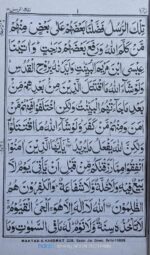 تِلْكَ الرُّسُلُ فَضَّلْنَا بَعْضَهُمْ عَلٰى بَعْضٍ مِنْهُمْ
مَّنْ كَلَّمَ اللّٰهُ وَرَفَعَ بَعْضَهُمْ دَرَجٰتٍ وَاٰتَيْنَا
عِيْسَى ابْنَ مَرْيَمَ الْبَيِّنٰتِ وَاَيَّدْنٰهُ بِرُوْحِ الْقُدُسِ
وَلَوْ شَآءَ اللّٰهُ مَا اقْتَتَلَ الَّذِيْنَ مِنْۢ بَعْدِهِمْ مِّنْۢ
بَعْدِ مَا جَآءَتْهُمُ الْبَيِّنٰتُ وَلٰكِنِ اخْتَلَفُوْا فَمِنْهُمْ
مَّنْ اٰمَنَ وَمِنْهُمْ مَّنْ كَفَرَ وَلَوْ شَآءَ اللّٰهُ مَا اقْتَتَلُوْا
وَلٰكِنَّ اللّٰهَ يَفْعَلُ مَا يُرِيْدُ يٰٓاَيُّهَا الَّذِيْنَ اٰمَنُوْٓا
اَنْفِقُوْا مِمَّا رَزَقْنٰكُمْ مِّنْ قَبْلِ اَنْ يَّاْتِيَ يَوْمٌ لَّا
بَيْعٌ فِيْهِ وَلَا خُلَّةٌ وَّلَا شَفَاعَةٌ وَالْكٰفِرُوْنَ هُمُ
الظّٰلِمُوْنَ اَللّٰهُ لَآ اِلٰهَ اِلَّا هُوَ اَلْحَيُّ الْقَيُّوْمُ
لَا تَاْخُذُهٗ سِنَةٌ وَّلَا نَوْمٌ لَهٗ مَا فِي السَّمٰوٰتِ وَمَا